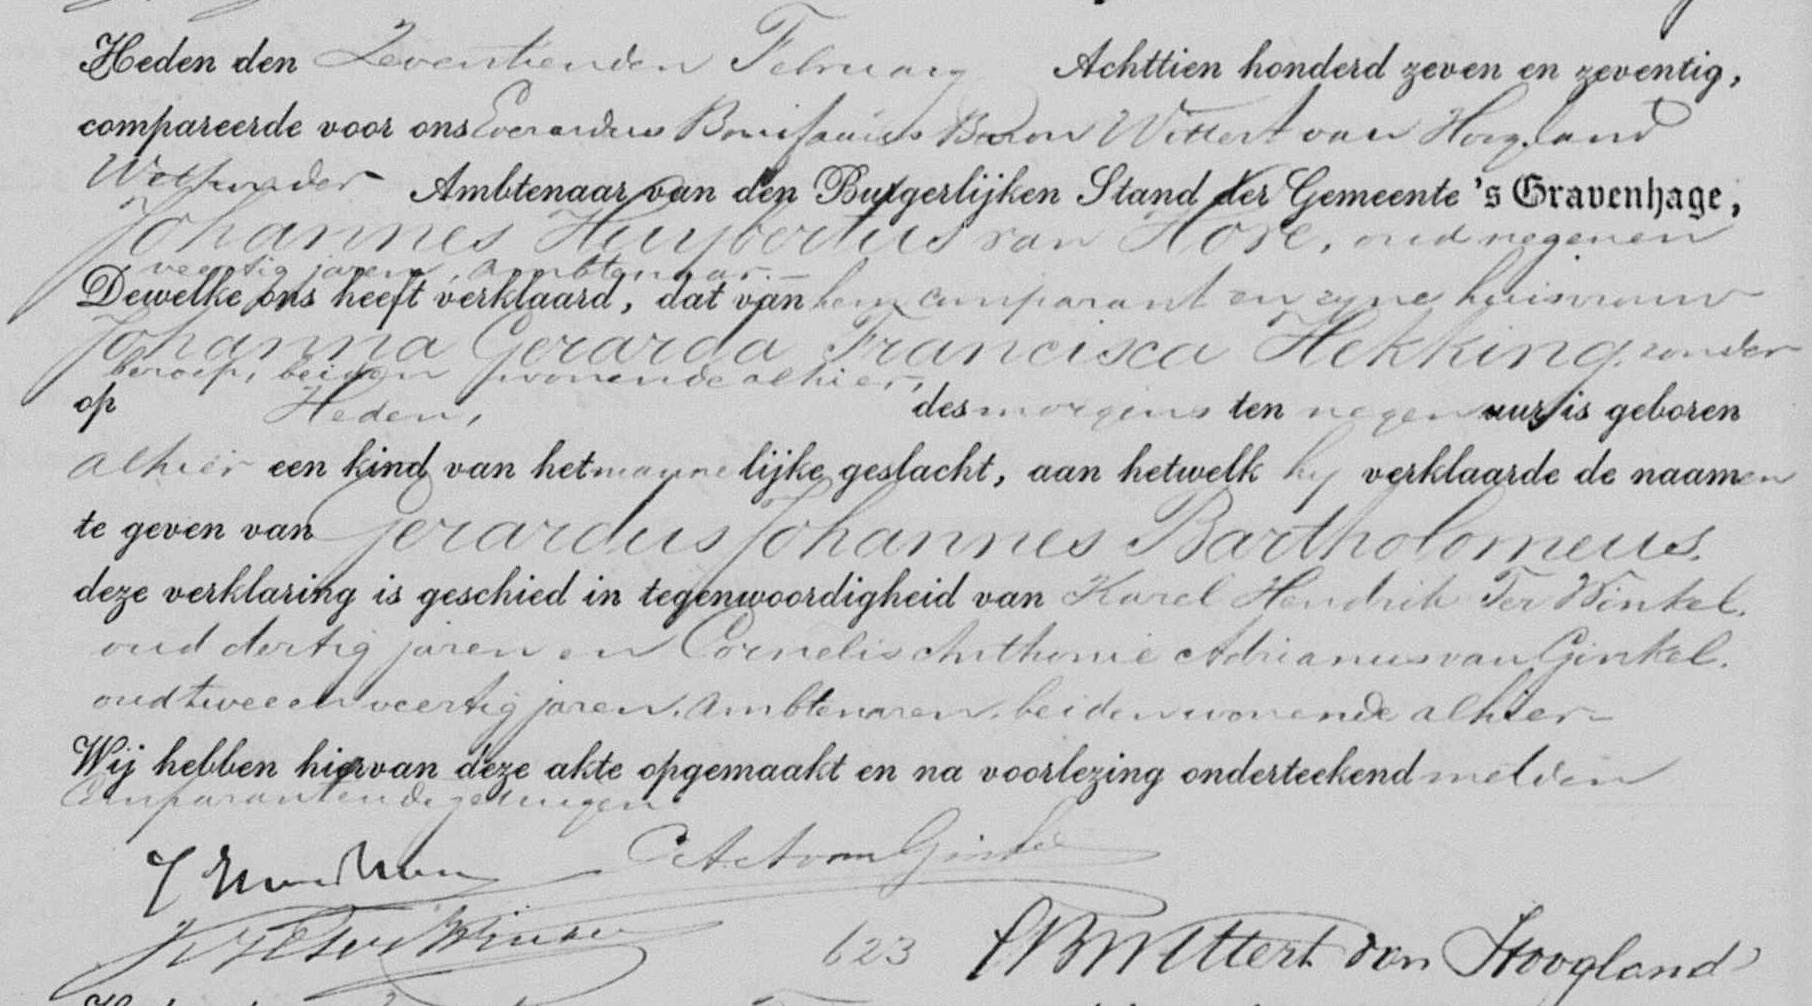 Heden den Zeventienden February Achttien honderd zeven en zeventig,
compareerde voor ons Everardus Bonifacius Baron Wittert van Hoogland
Wethouder Ambtenaar van den Burgerlijken Stand der Gemeente 's Gravenhage,
Johannes Huybertus van Hove, oud negenen
veertig jaren, ambtenaar.—
Dewelke ons heeft verklaard, dat van hem comparant en zyne huisvrouw
Johanna Gerarda Francisca Hekking, zonder
beroep, beiden wonende alhier,
op Heden, des morgens ten negen uur is geboren
alhier een kind van het mannelijke geslacht, aan hetwelk hy verklaarde de naamen
te geven van Gerardus Johannes Bartholomeus.
deze verklaring is geschied in tegenwoordigheid van Karel Hendrik Ter Winkel.
oud dertig jaren en Cornelis Anthonie Adrianus van Ginkel.
oud twee en veertig jaren. ambtenaren. beiden wonende alhier—
Wij hebben hiervan deze akte opgemaakt en na voorlezing onderteekend met den
Comparant en de getuigen
CAA van Ginkel
KH Ter Winkel
623 EB Wittert van Hoogland